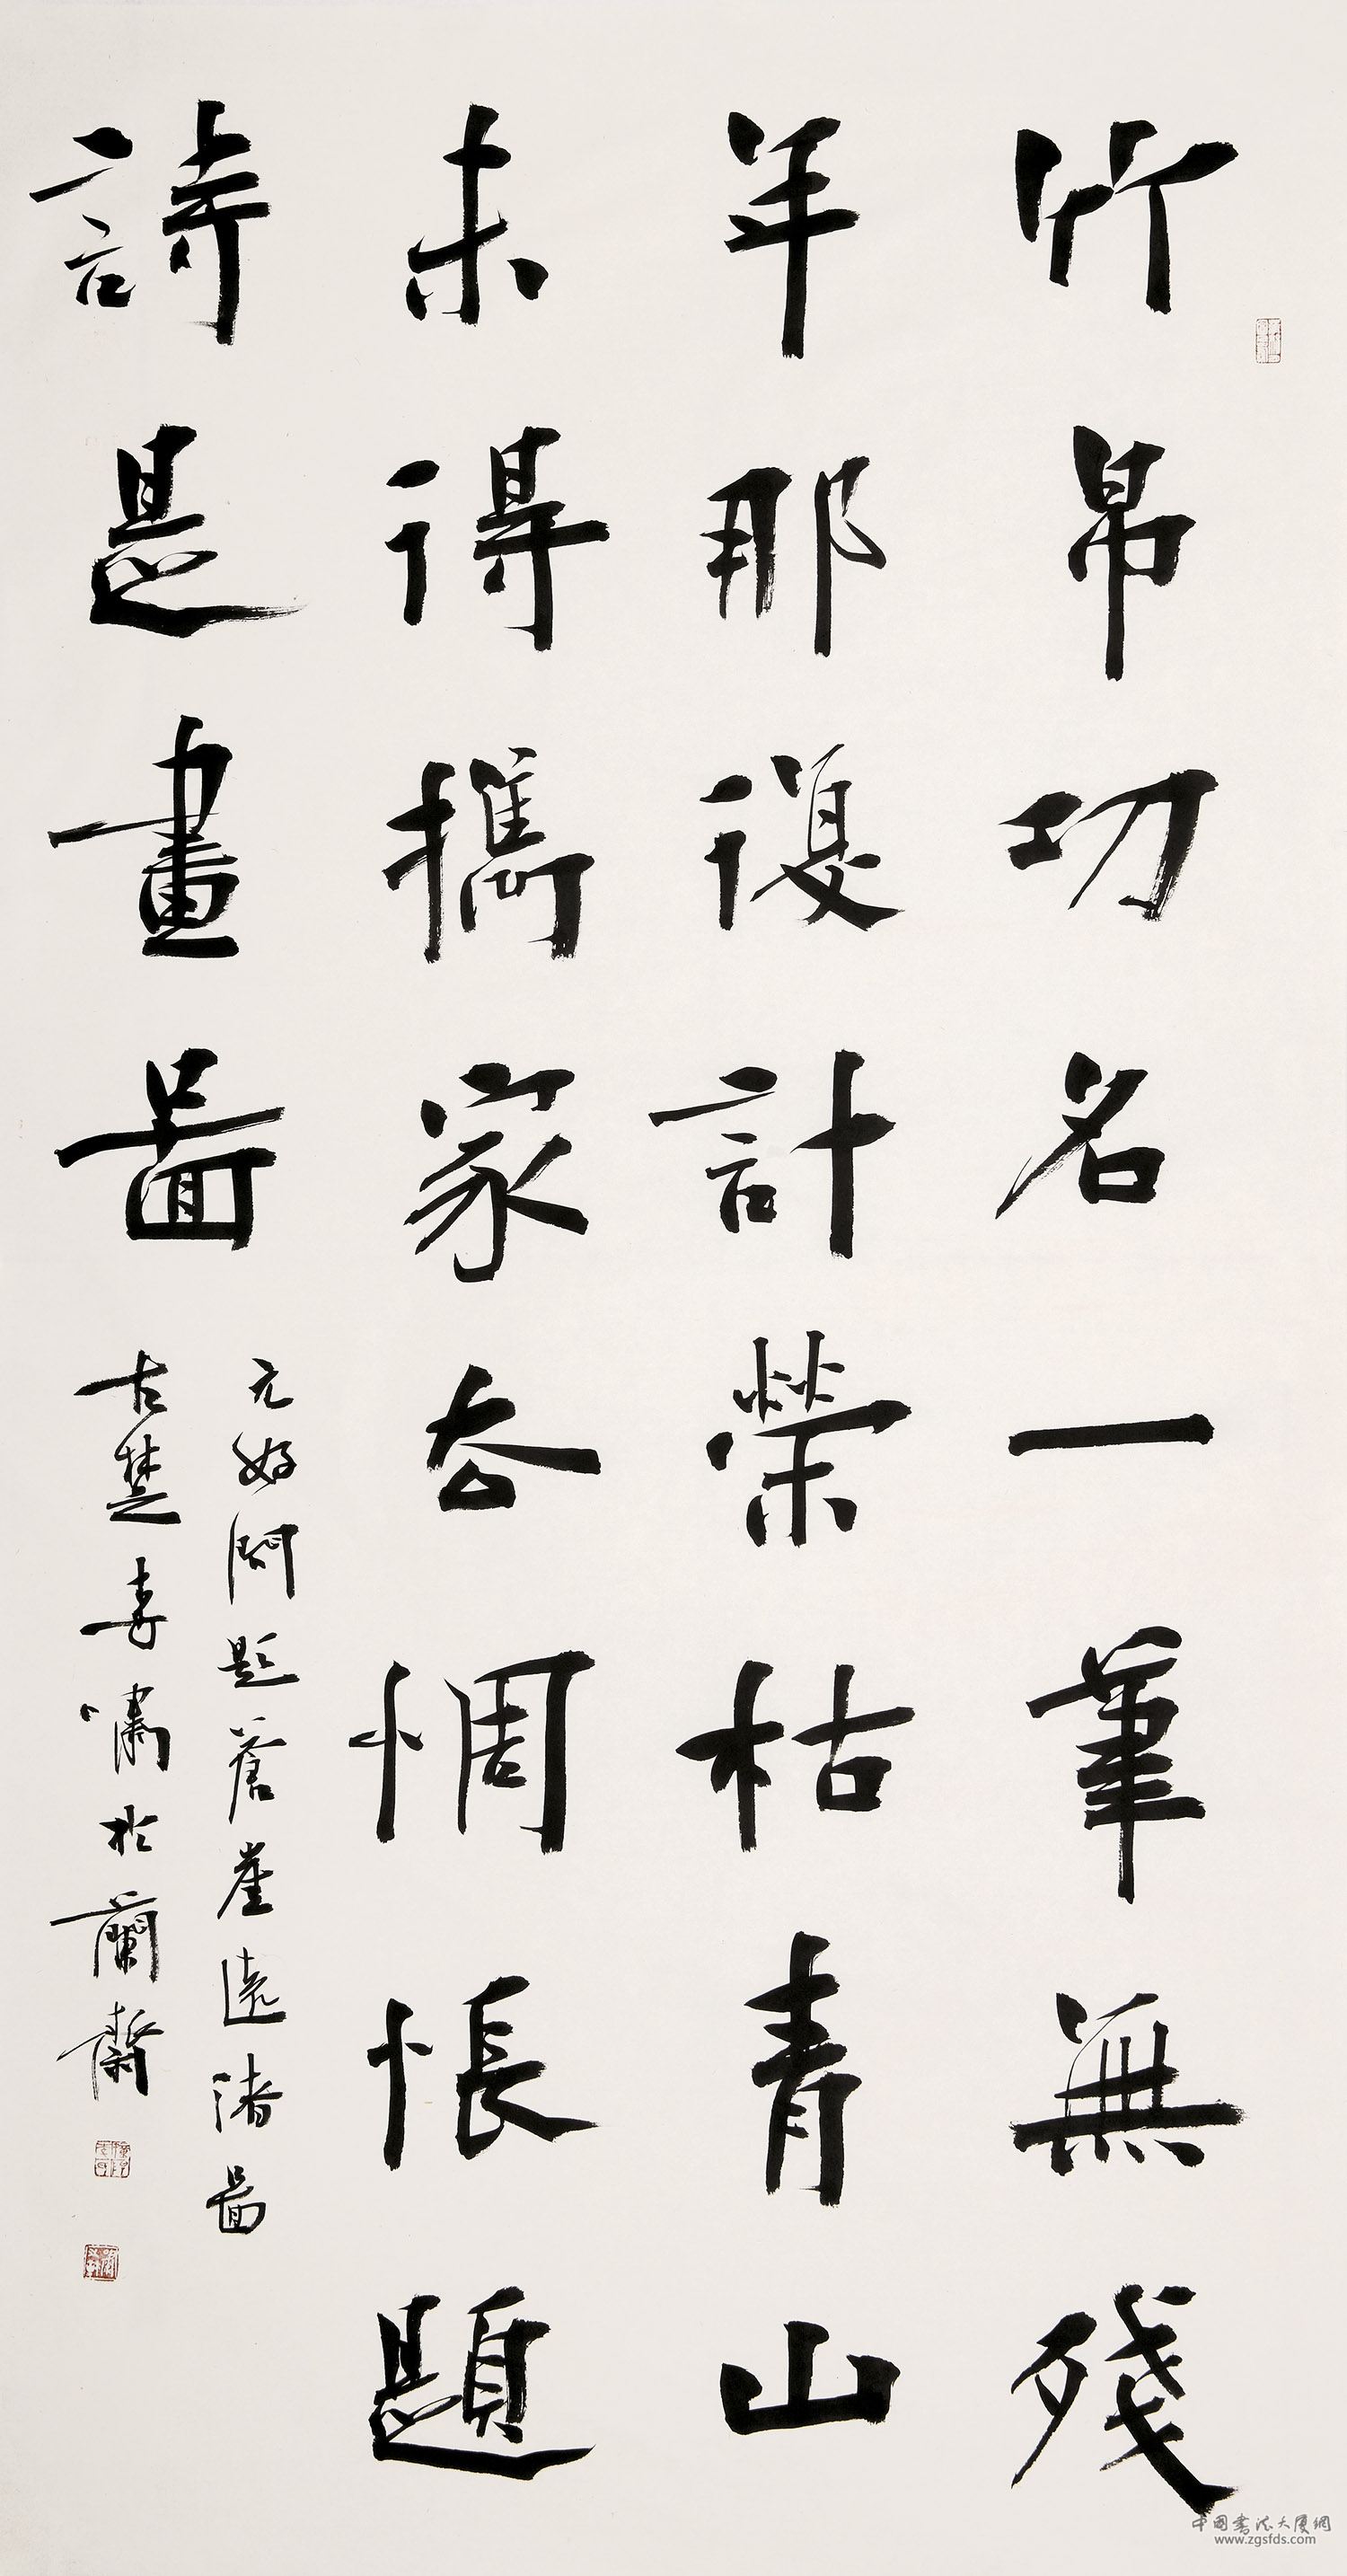 竹帛功名一筆無殘
年那復計榮枯青山
未得攜家去惆悵題
詩是畫圖
元好問題蒼崖遠渚圖
古楚李嘯於蘭齋
中国书法大厦網
www.zgsfds.com